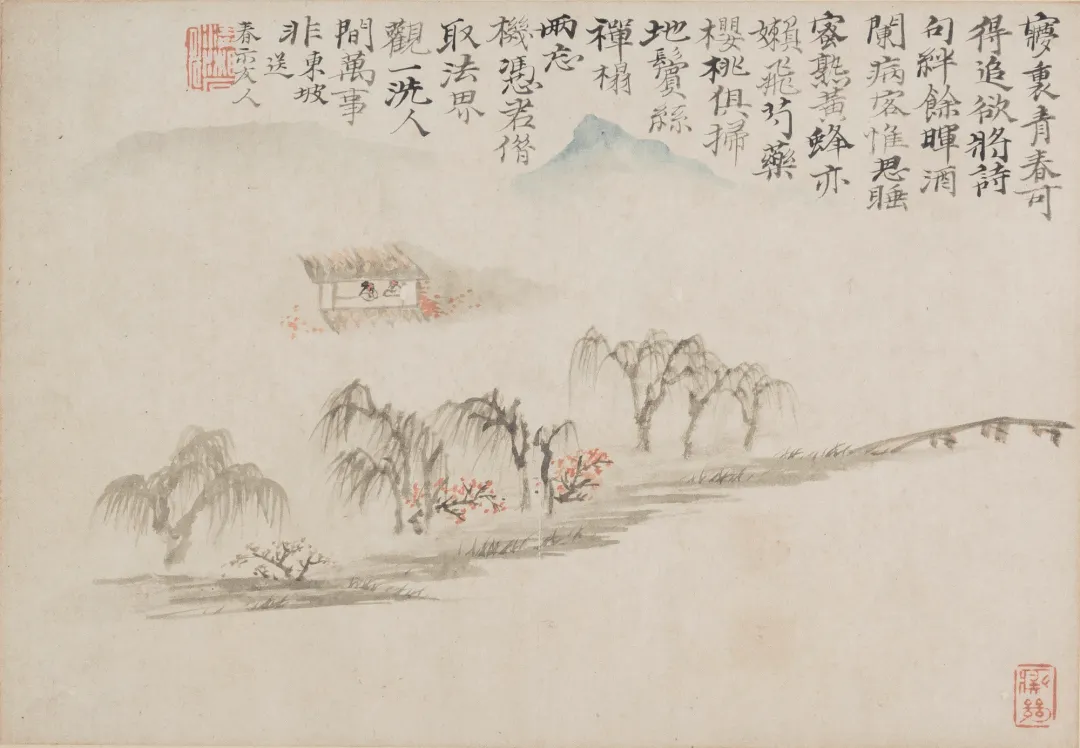 夢裏青春可
得追欲將詩
句絆餘暉酒
闌病客惟思睡
蜜熟黃蜂亦
嬾飛芍藥
櫻桃俱掃
地鬢絲
禪榻
兩忘
機憑君借
取法界
觀一洗人
間萬事
非東坡
送
春示友人